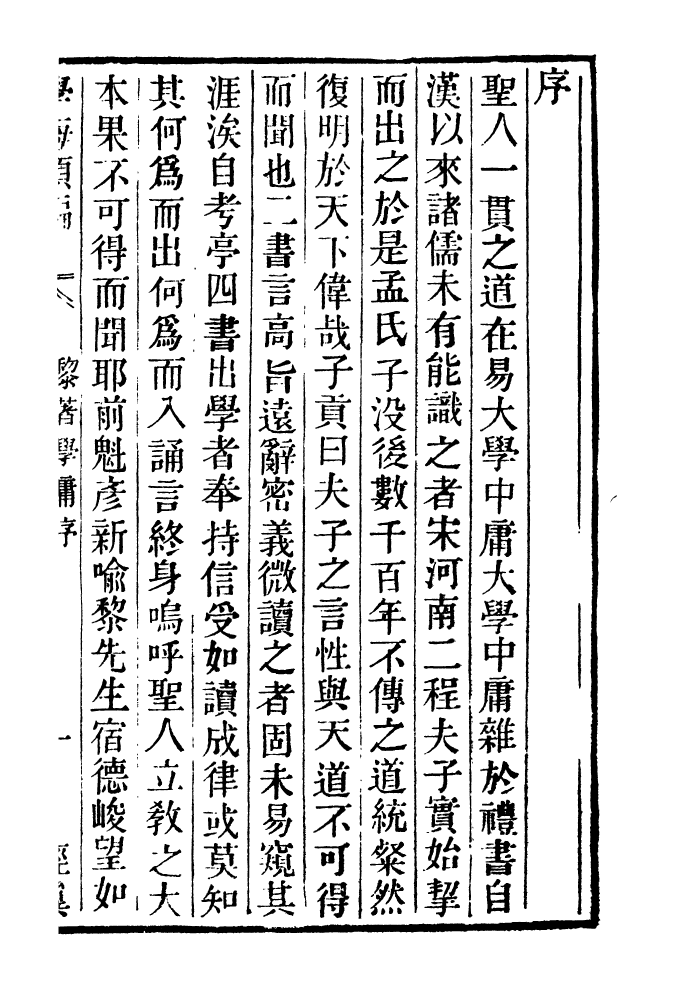 序
聖人一貫之道在易大學中庸大學中庸雜於禮書自
漢以來諸儒未有能識之者宋河南二程夫子實始挈
而出之於是孟氏子没後數千百年不傳之道統粲然
復明於天下偉哉子貢曰夫子之言性與天道不可得
而聞也二書言高旨遠辭密義微讀之者固未易窺其
涯涘自考亭四書出學者奉持信受如讀成律或莫知
其何爲而出何爲而入誦言終身嗚呼聖人立敎之大
本果不可得而聞耶前魁彥新喻黎先生宿德峻望如
學海類編 黎著學庸序 一 經翼